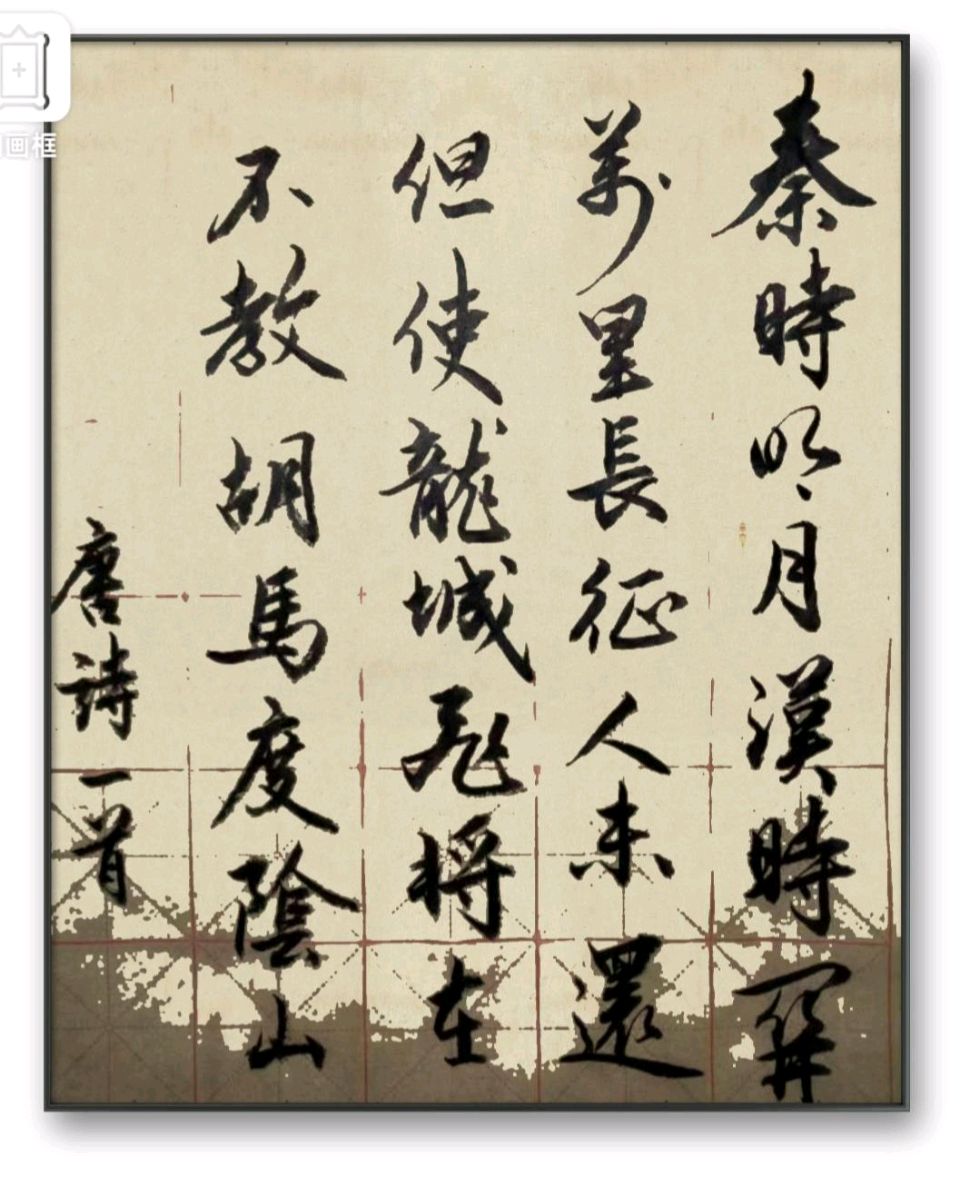 秦時明月漢時關
萬里長征人未還
但使龍城飛将在
不教胡馬度陰山
唐詩一首
画框